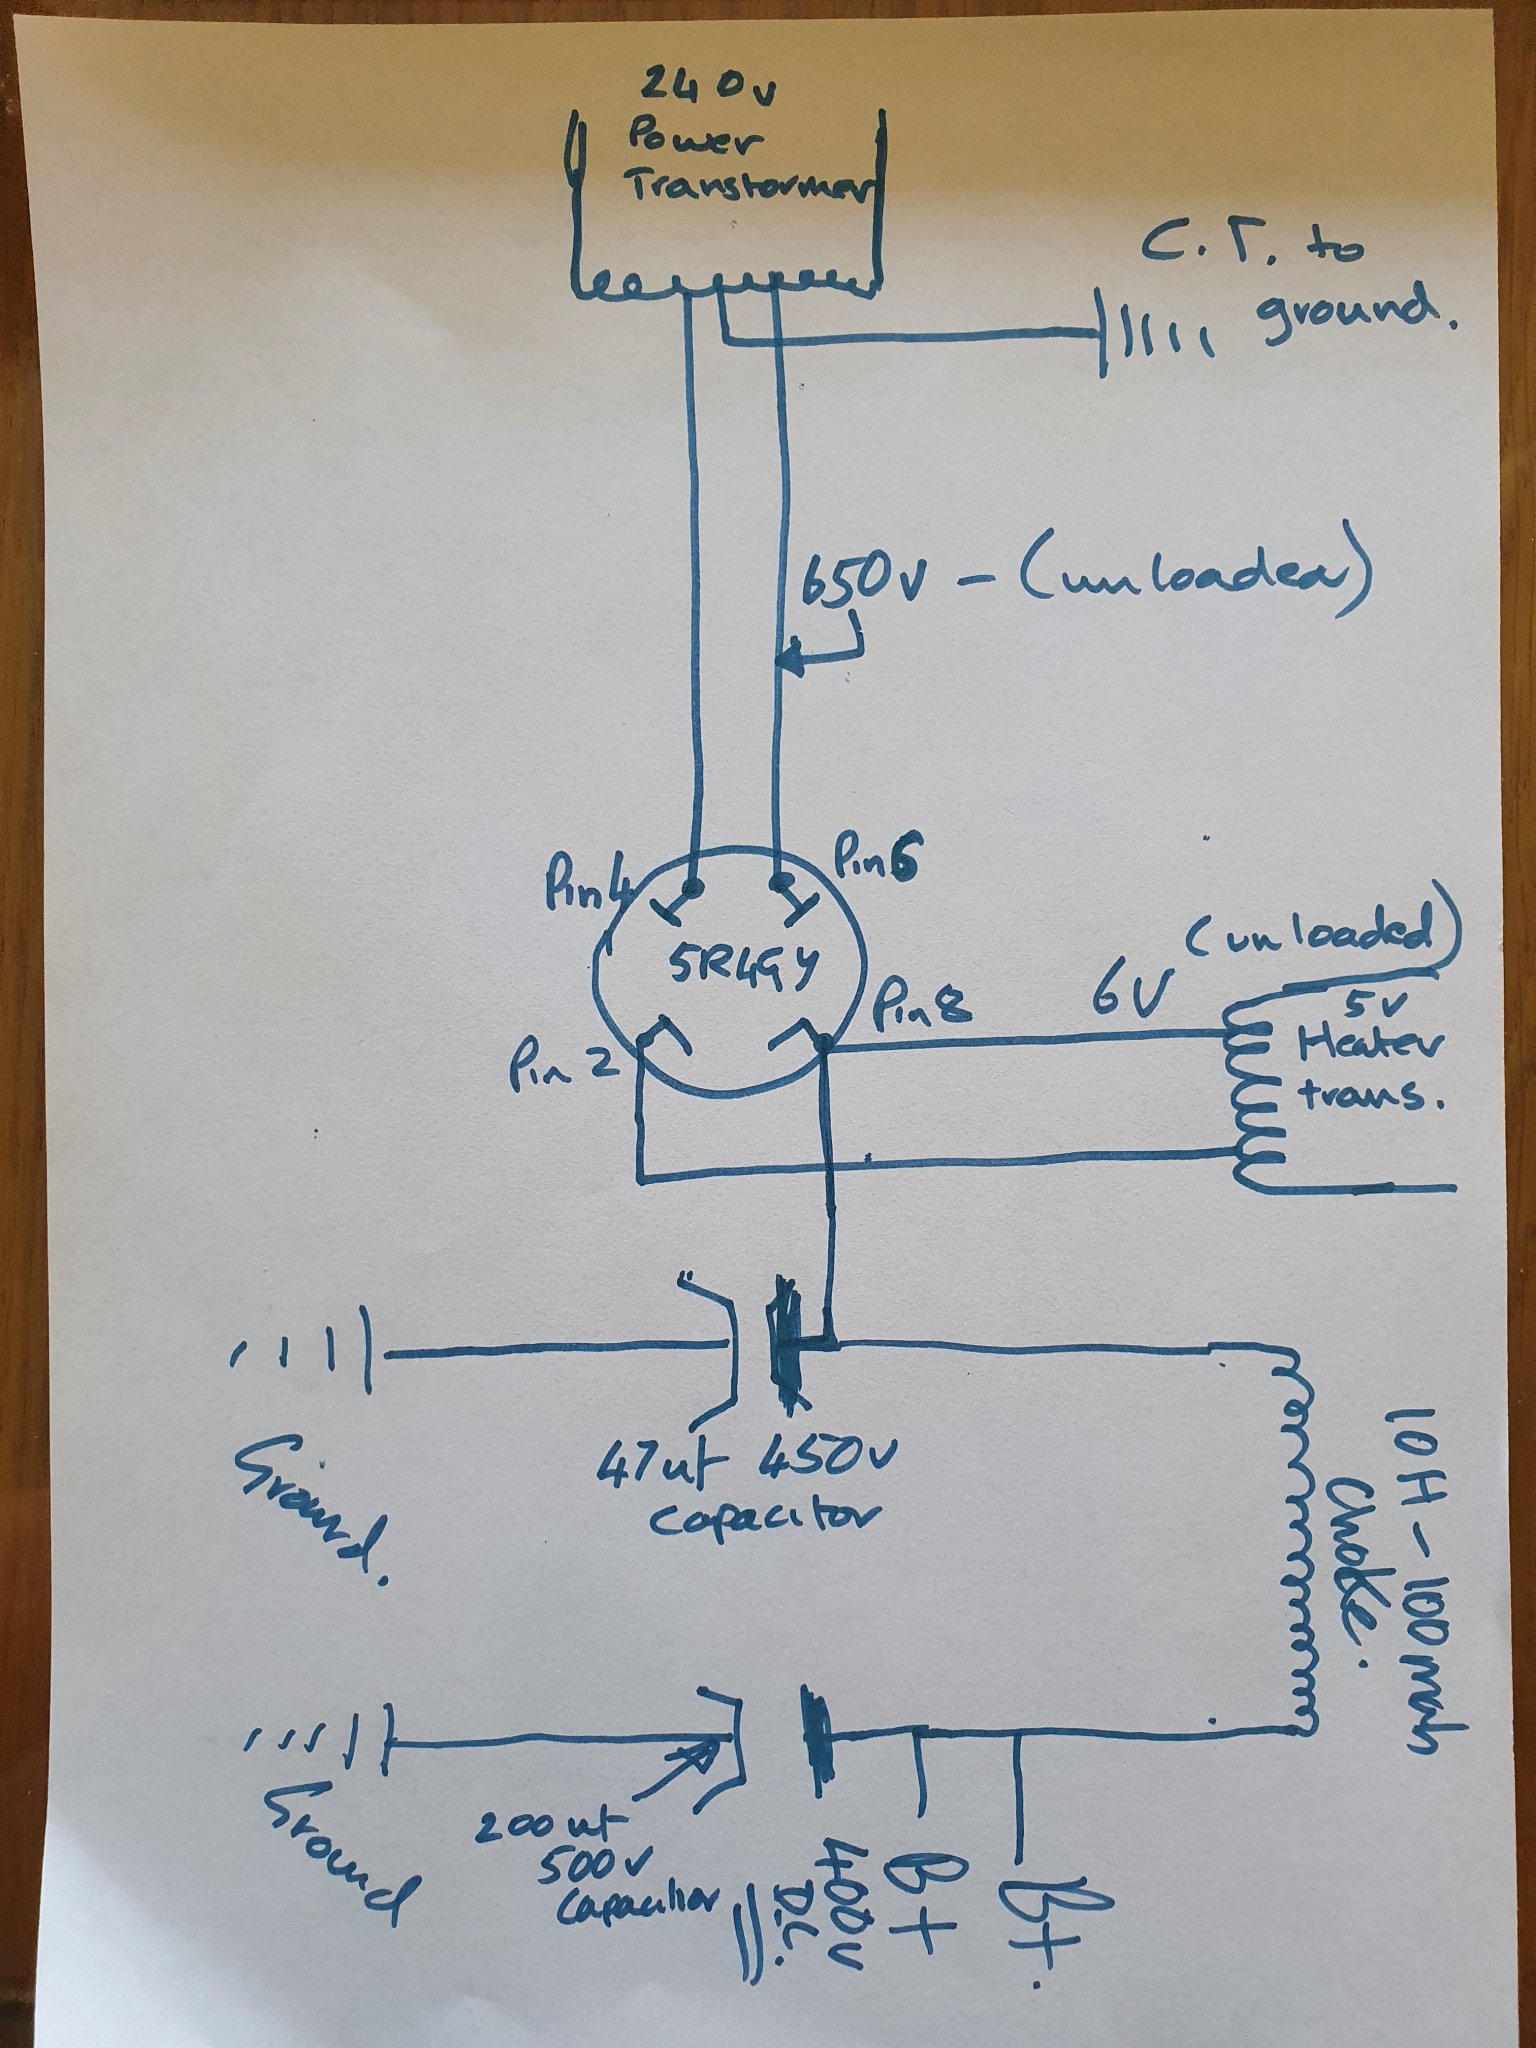 240v
Power
Transformer
C.T. to
ground.
650v - (unloaded)
Pin 4
Pin 6
5R4GY
Pin 8
Pin 2
6V
(unloaded)
5v
Heater
trans.
47uf 450v
capacitor
Ground.
10H - 100mah
Choke.
200uf
500v
Capacitor
Ground
400v
D.C.
B+
B+.